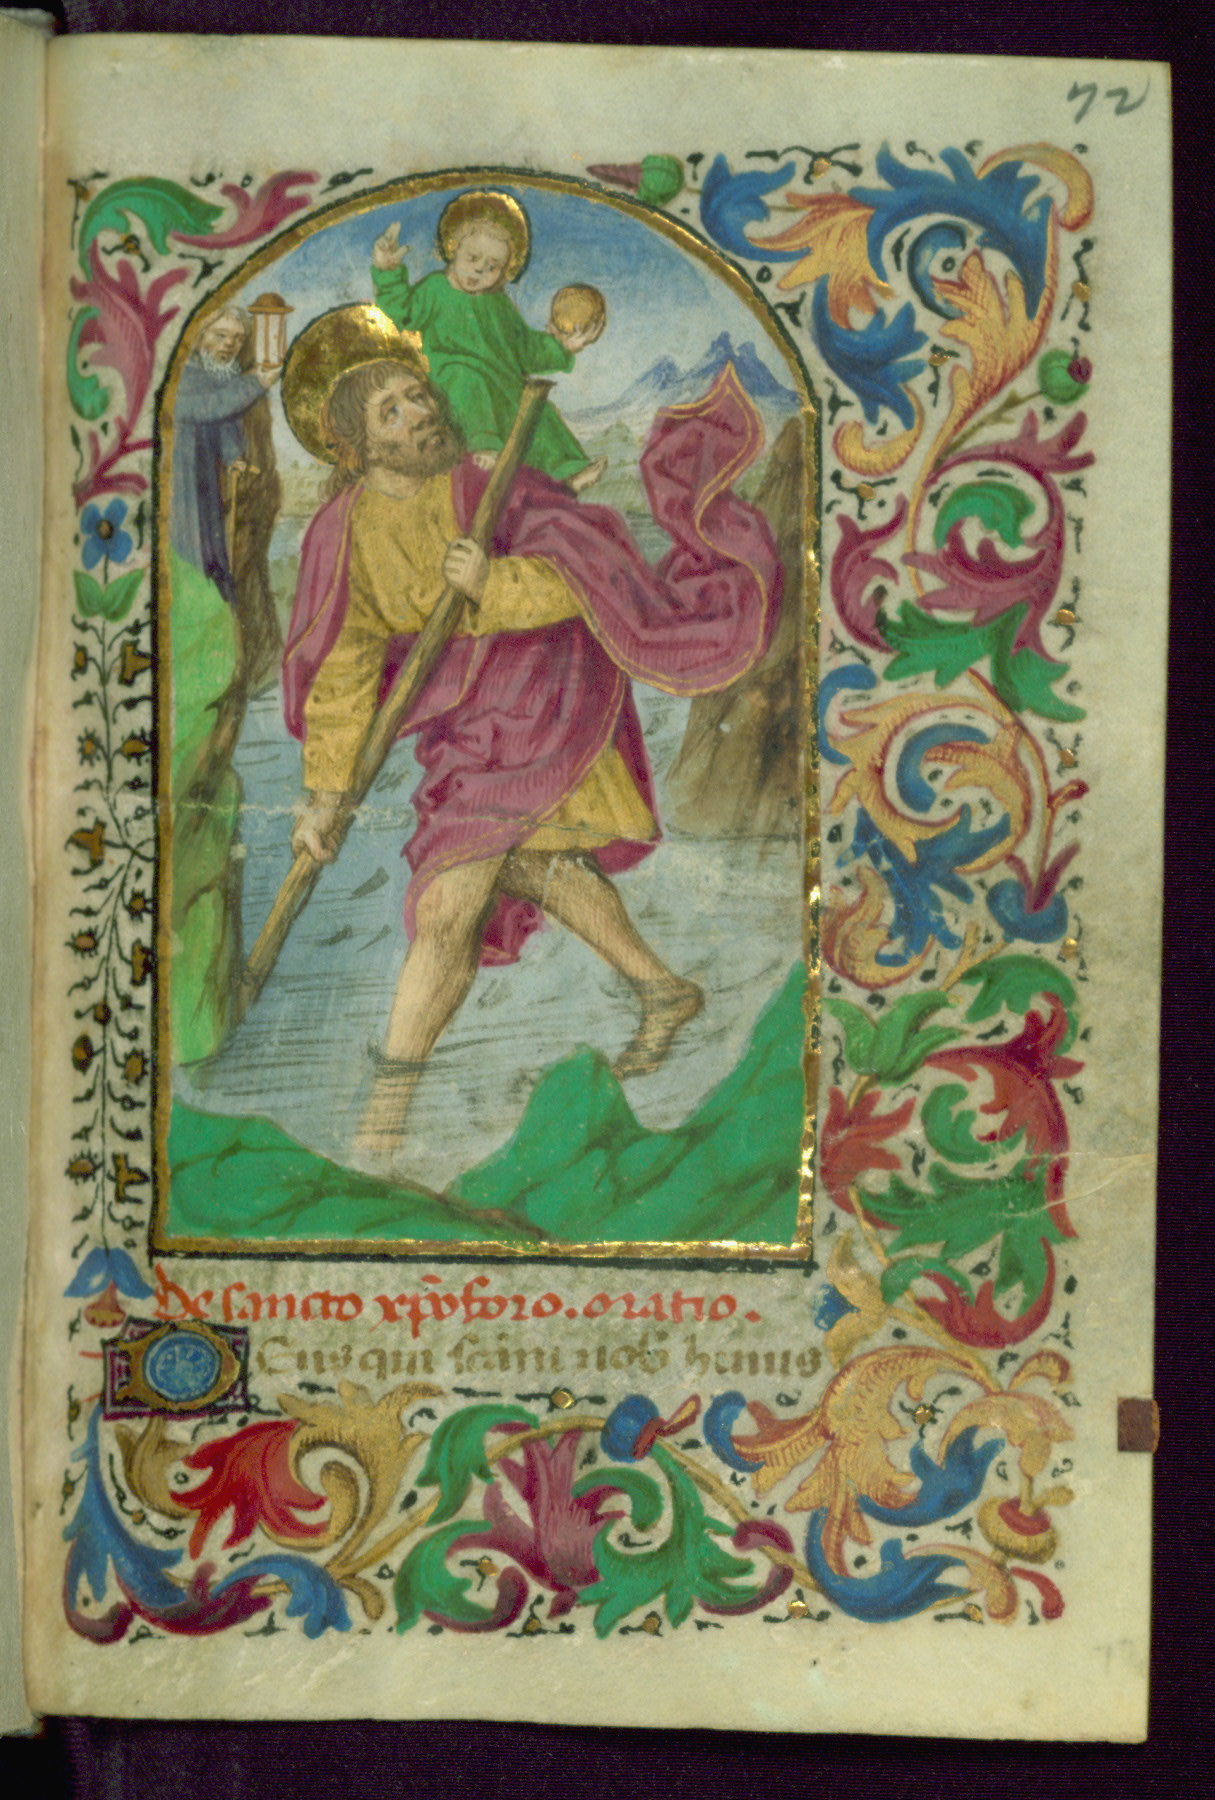 72
De sancto xp̄oforo. oratio.
Deus qui sc̄am nob̄ huius